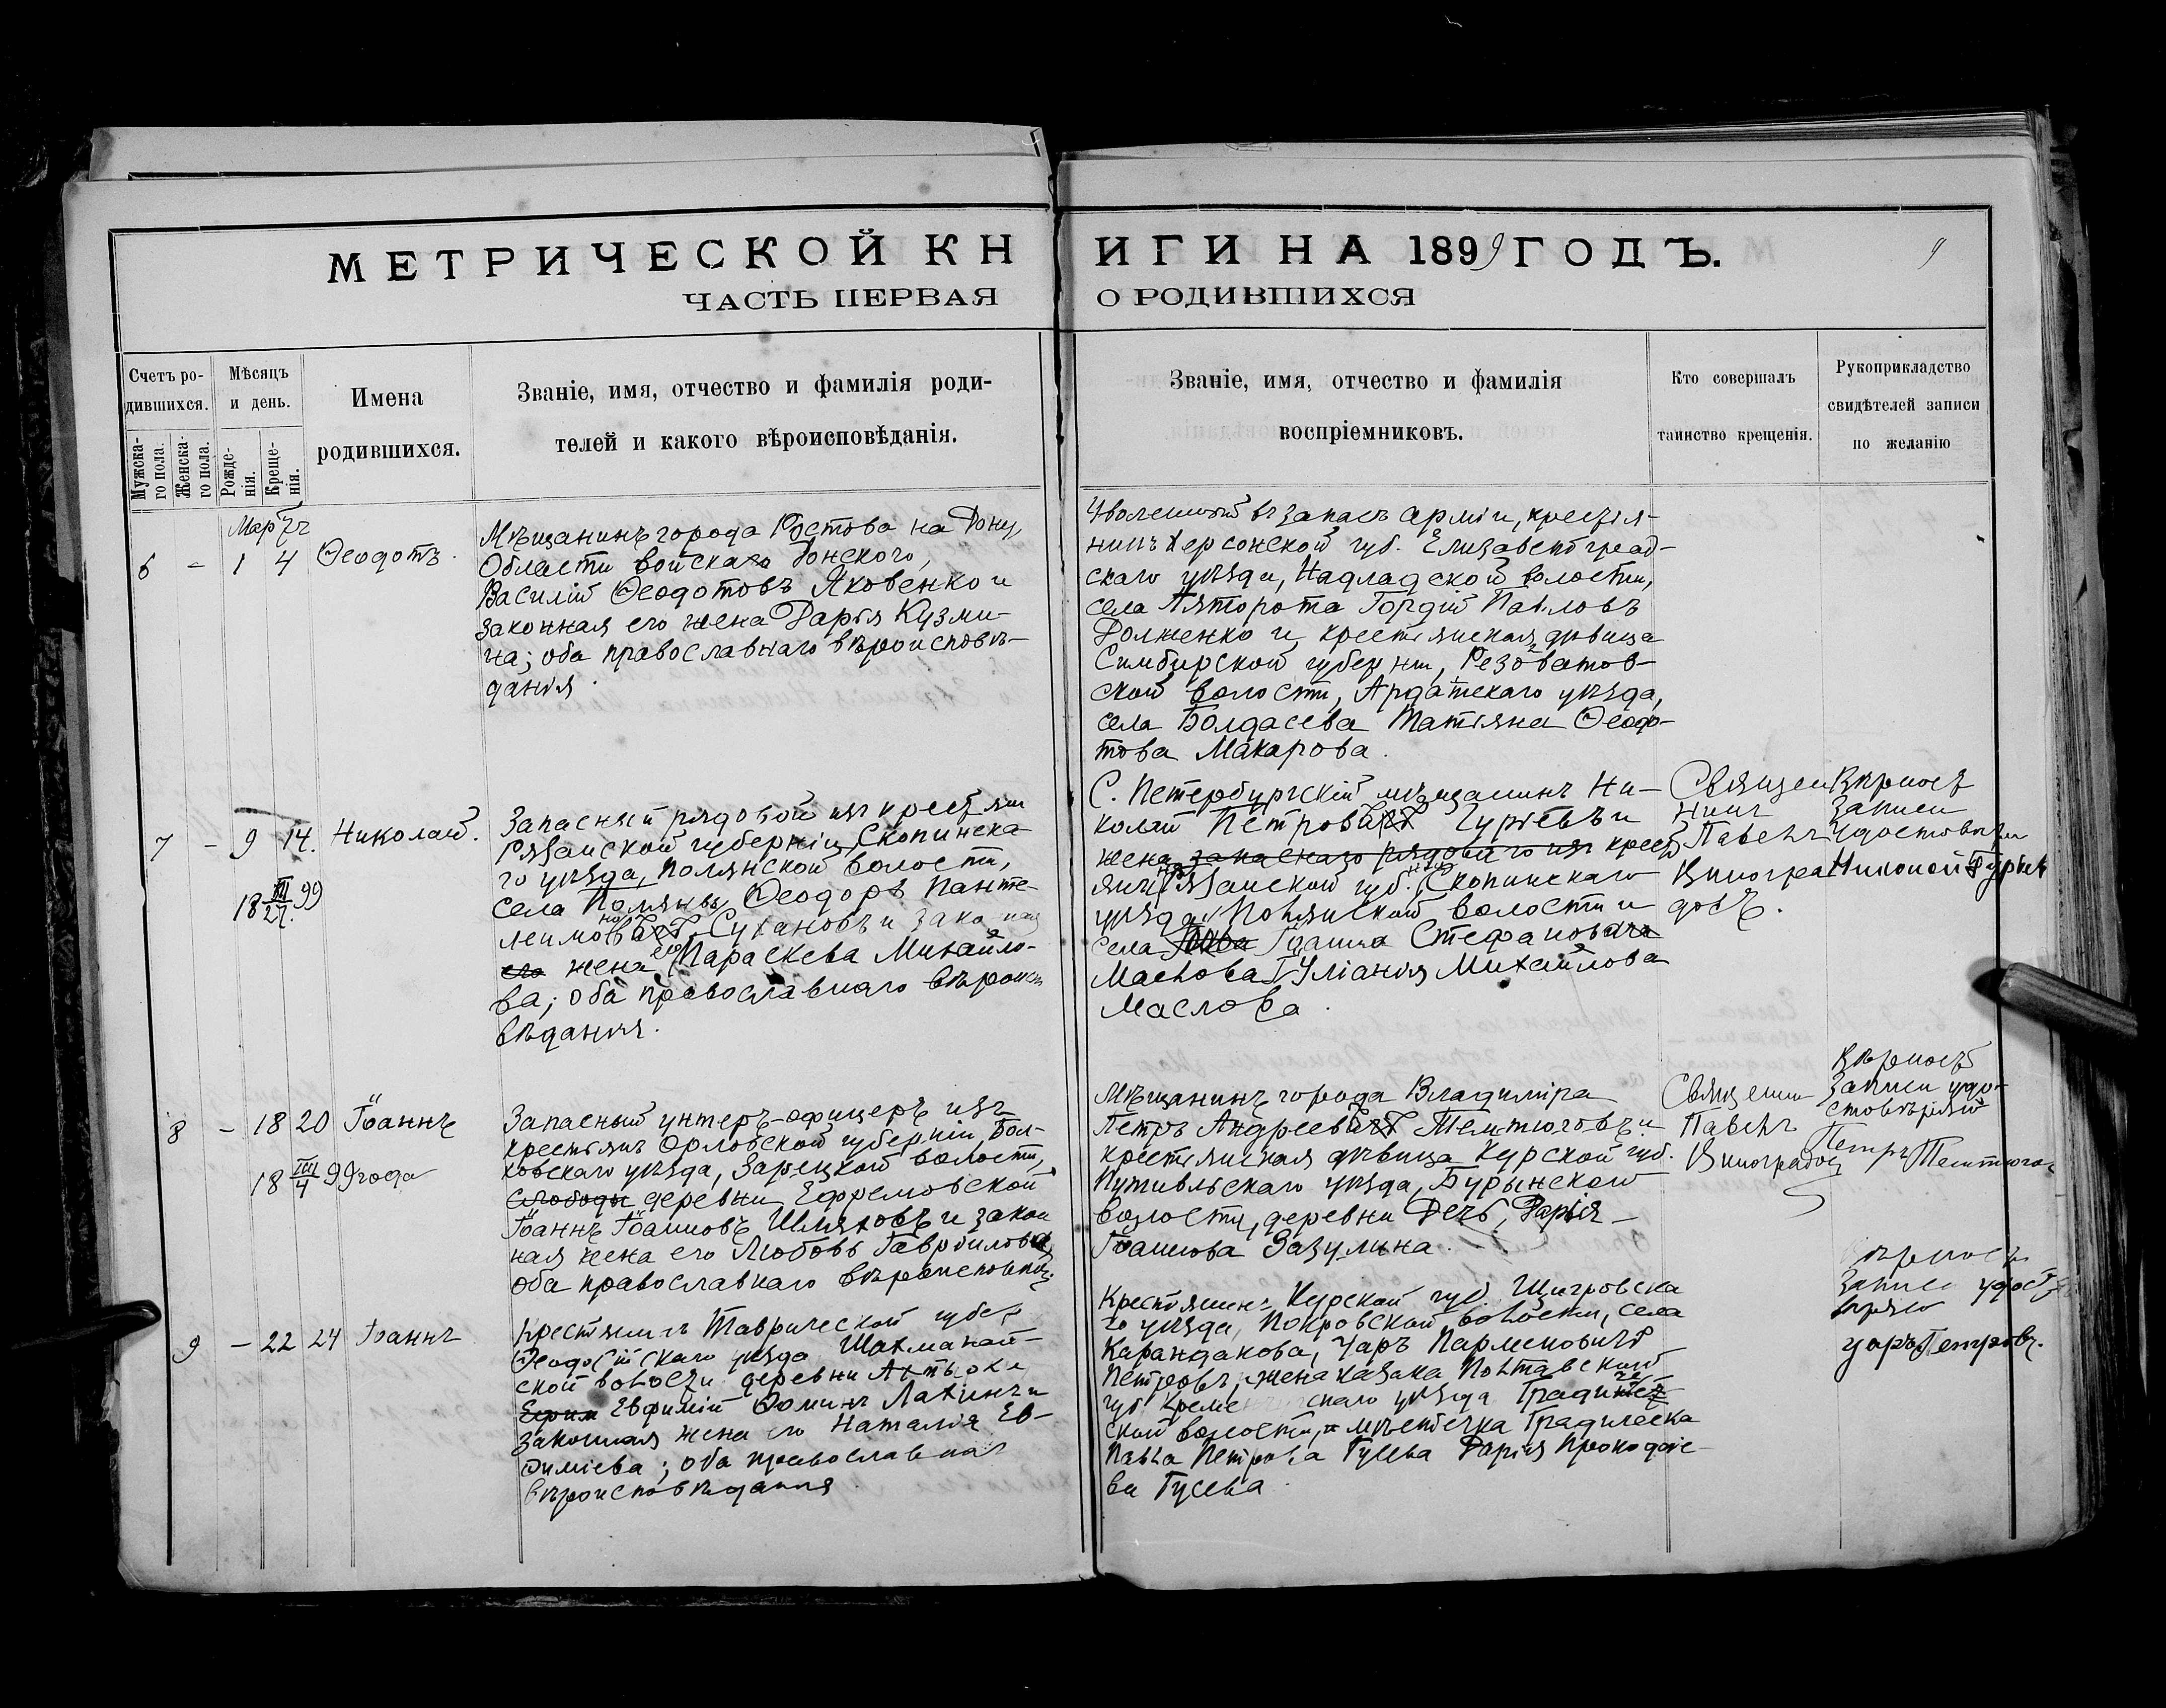 МЕТРИЧЕСКОЙ КНИГИ НА 1899 ГОДЪ.
9
ЧАСТЬ ПЕРВАЯ О РОДИВШИХСЯ
Счетъ ро-
дившихся.
Мужска-
го пола.
Женска-
го пола.
Мѣсяцъ
и день.
Рожде-
нія.
Креще-
нія.
Имена
родившихся.
Званіе, имя, отчество и фамилія роди-
телей и какого вѣроисповѣданія.
Званіе, имя, отчество и фамилія
воспріемниковъ.
Кто совершалъ
таинство крещенія.
Рукоприкладство
свидѣтелей записи
по желанію
Мартъ
6 - 1 4 Ѳеодотъ.
Мѣщанинъ города Ростова на Дону,
Области войска Донского,
Василій Ѳеодотовъ Яковенко и
законная его жена Дарія Кузми-
на; оба православнаго вѣроисповѣ-
данія.
Уволенный въ запасъ арміи, крестья-
нинъ Херсонской губ. Елизаветград-
скаго уѣзда, Надладской волости,
села Пяторота Гордій Павловъ
Долженко и крестьянская дѣвица
Симбирской губерніи, Резоватов-
ской волости, Ардатскаго уѣзда,
села Болдасева Татіяна Ѳеодо-
това Макарова.
7 - 9 14. Николай.
18 III/27. 99
Запасный рядовой изъ крестьян
Рязанской губерніи, Скопинска
го уѣзда, Полянской волости,
села Поляны, Ѳеодоръ Панте-
леимоновъ Сухановъ и законная
его жена Параскева Михайло-
ва; оба православнаго вѣроиспо
вѣданія.
С. Петербургскій мѣщанинъ Ни-
колай Петровъ Гурьевъ и
жена запаснаго рядового изъ крест
янъ Рязанской губ. Скопинскаго
уѣзда, Полянской волости и
села Іоанна Стефанова
Маслова Іуліанія Михайлова
Маслова.
Священ
никъ
Павелъ
Виногра
довъ.
Вѣрность
Записи
Удостовѣряю
Николай Гурьев
8 - 18 20 Іоаннъ
18 III/4 99 года
Запасный унтеръ-офицеръ изъ
крестьянъ Орловской губерніи, Бол-
ховскаго уѣзда, Зарецкой волости,
слободы деревни Ефремовской
Іоаннъ Іоанновъ Шляховъ и закон
ная жена его Любовь Гавріилова,
оба православнаго вѣроисповѣд.
Мѣщанинъ города Владиміра
Петръ Андреевъ Темтюговъ и
крестьянская дѣвица Курской губ.
Путивльскаго уѣзда, Бурынской
волости, деревни Дечь, Дарія
Іоаннова Зазулина.
Священник
Павелъ
Виноградов
Вѣрность
Записи удо-
стовѣряю
Петръ Темтюгов
9 - 22 24 Іоаннъ
Крестьянинъ Таврической губер
Ѳеодосійскаго уѣзда Шахманай-
ской волости деревни
Ефим Евфимій Ѳоминъ Лахинъ и
законная жена его Наталія Ев-
фиміева; оба православнаго
вѣроисповѣданія.
Крестьянинъ Курской губ. Щигровска
го уѣзда, Покровской волости, села
Карандакова, Уаръ Парменовичъ
Петровъ, жена казака Полтавской
губ Креме скаго уѣзда Градижс
ской волости, мѣстечка Градижска
Павла Петрова Гусева Дарія Прокофіе-
ва Гусева.
Вѣрность
Записи удост
вѣряю
Уаръ Петровъ.